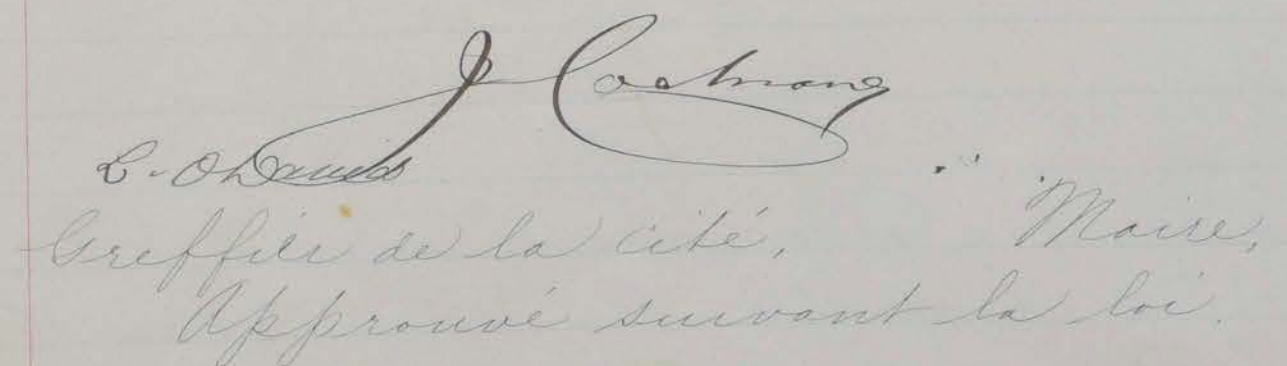 J Cochrane
L. O David
Greffier de la cité, Maire,
Approuvé suivant la loi.